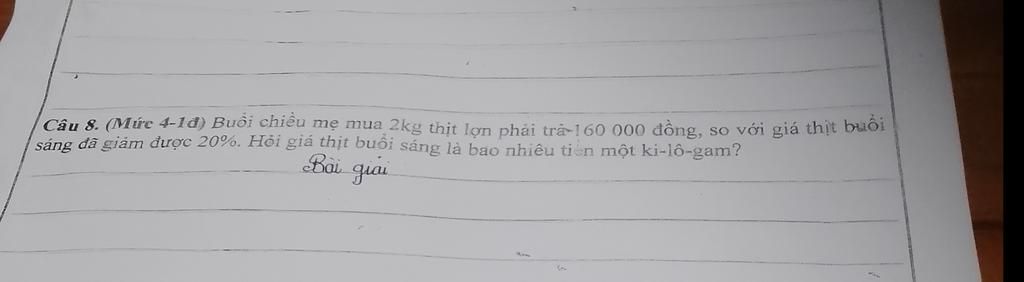 Câu 8. (Mức 4-1đ) Buổi chiều mẹ mua 2kg thịt lợn phải trả 160 000 đồng, so với giá thịt buổi
sáng đã giảm được 20%. Hỏi giá thịt buổi sáng là bao nhiêu tiền một ki-lô-gam?
Bài giải